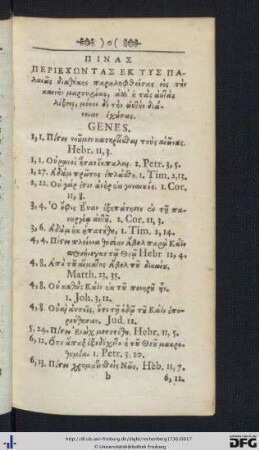 )o(
ΠΙΝΑΞ
ΠΕΡΙΕΧΩΝΤΑΣ ΕΚ ΤΥΣ ΠΑ-
λαιᾶς διαθήκης παραληφθείσας εἰς τὴν
καινὴν μαρτυρίας,
λέξιν, μόνον
νοιαν ἐχύσας.
GENES.
1, 1. Πίστει νοῦμεν κατηρτίσθαι τοὺς αἰῶνας.
Hebr. 11, 3.
1, 1. Οὐρανοὶ ἦσαν ἔκπαλαι. 2. Petr. 3, 5.
1, 27. Ἀδὰμ πρῶτος ἐπλάσθη. 1. Tim. 2, 13.
2, 22. Οὐ γάρ ἐστιν ἀνὴρ ἐκ γυναικός. 1. Cor.
11, 8.
3, 4. Ὁ ὄφις Εὔαν ἐξηπάτησεν ἐν τῇ πα-
νουργίᾳ αὑτοῦ. 2. Cor. 11, 3.
3, 6. Ἀδὰμ οὐκ ἠπατήθη. 1. Tim. 2, 14.
4, 4. Πίστει πλείονα θυσίαν Ἄβελ παρὰ Κάϊν
προσήνεγκε τῷ Θεῷ Hebr 11, 4.
4, 8. Ἀπὸ τοῦ αἵματος Ἄβελ τοῦ δικαίου.
Matth. 23, 35.
4, 8. Οὐ καθὼς Κάϊν ἐκ τοῦ πονηροῦ ἦν.
1. Joh. 3, 12.
4, 8. Οὐαὶ αὐτοῖς, ὅτι τῇ ὁδῷ τοῦ Κάϊν ἐπο-
ρεύθησαν. Jud. 12.
5, 24. Πίστει Ἐνὼχ μετετέθη. Hebr. 11, 5.
6, 12. Ὅτε ἅπαξ ἐξεδέχετο ἡ τοῦ Θεοῦ μακρο-
θυμία. 1. Petr. 3, 20.
6, 13. Πίστει χρηματισθεὶς Νῶε. Heb. 11, 7.
b 6, 22.
http://dl.ub.uni-freiburg.de/diglit/rechenberg1736/0017
© Universitätsbibliothek Freiburg
gefördert durch die
DFG